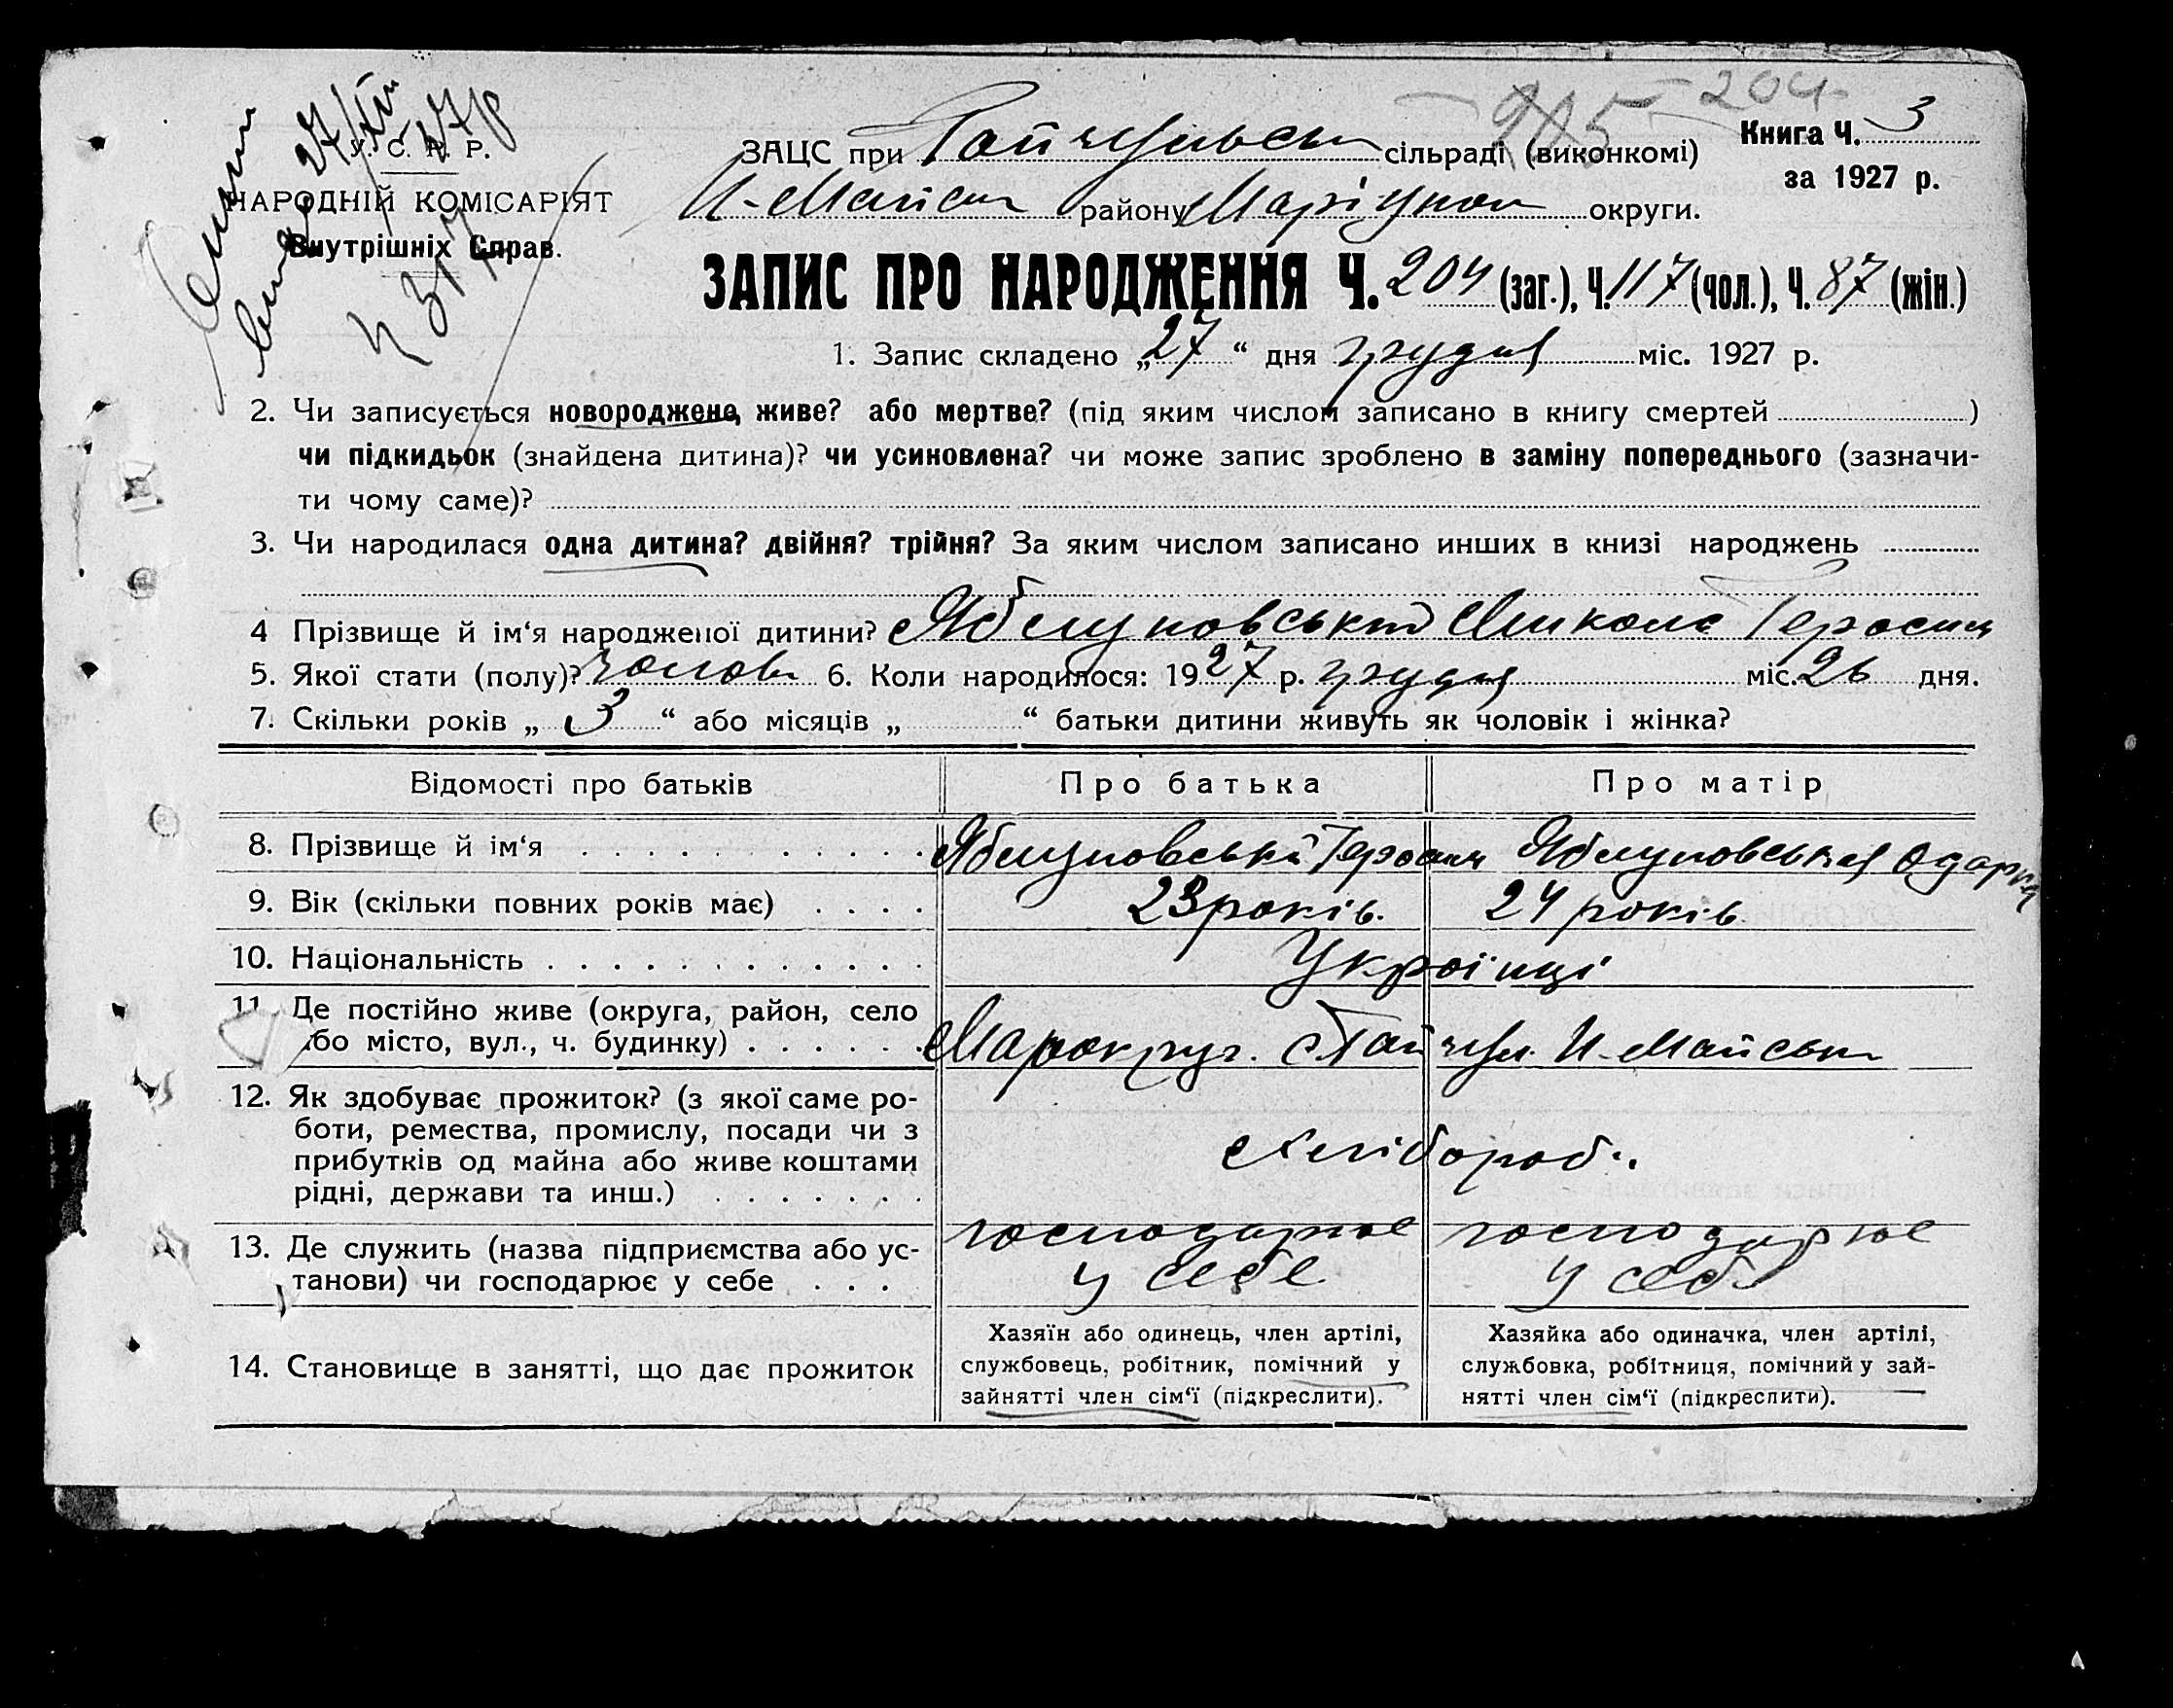 205 204
У. С. Р. Р.
НАРОДНІЙ КОМІСАРІЯТ
Внутрішніх Справ.
27/XII 27р
ч 317
ЗАЦС при Гайчульськ сільраді (виконкомі) Книга Ч. 3
за 1927 р.
И-Майськ району Маріупол округи.
ЗАПИС ПРО НАРОДЖЕННЯ Ч. 204 (заг.), Ч. 117 (чол.), Ч. 87 (жін.)
1. Запис складено „27“ дня грудня міс. 1927 р.
2. Чи записується новороджене, живе? або мертве? (під яким числом записано в книгу смертей )
чи підкидьок (знайдена дитина)? чи усиновлена? чи може запис зроблено в заміну попереднього (зазначи-
ти чому саме)?
3. Чи народилася одна дитина? двійня? трійня? За яким числом записано инших в книзі народжень
4 Прізвище й ім‘я народженої дитини? Яблуновський Микола Герасим
5. Якої стати (полу)? чолов 6. Коли народилося: 1927 р. грудня міс. 26 дня.
7. Скільки років „ 3 “ або місяців „ “ батьки дитини живуть як чоловік і жінка?
Відомості про батьків Про батька Про матір
8. Прізвище й ім‘я Яблуновський Герасим Яблуновська Одарка
9. Вік (скільки повних років має) 23 років. 24 років
10. Національність Українці
11. Де постійно живе (округа, район, село
або місто, вул., ч. будинку) Марокруг. с Гайчул. И-Майськ
12. Як здобуває прожиток? (з якої саме ро-
боти, ремества, промислу, посади чи з
прибутків од майна або живе коштами
рідні, держави та инш.)
хлібороби
13. Де служить (назва підприємства або ус-
танови) чи господарює у себе
господарює господарює
у себе у себе
14. Становище в занятті, що дає прожиток
Хазяїн або одинець, член артілі,
службовець, робітник, помічний у
зайнятті член сім‘ї (підкреслити).
Хазяйка або одиначка, член артілі,
службовка, робітниця, помічний у зай-
нятті член сім‘ї (підкреслити).